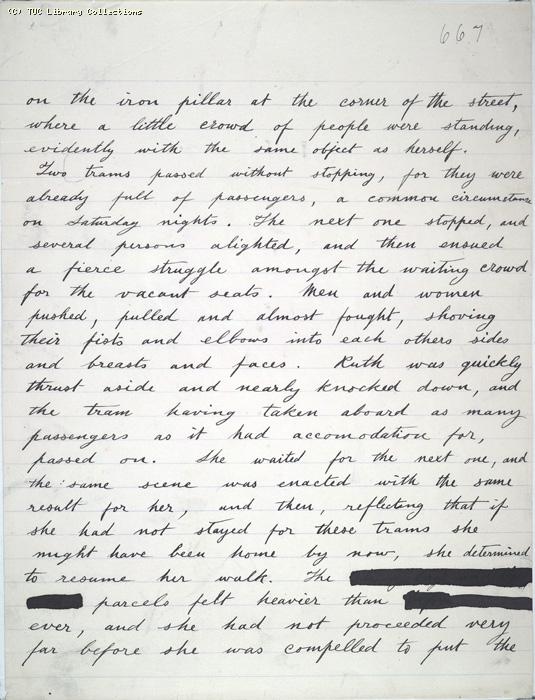 (C) TUC Library Collections
667
on the iron pillar at the corner of the street,
where a little crowd of people were standing,
evidently with the same object as herself.
Two trams passed without stopping, for they were
already full of passengers, a common circumstance
on Saturday nights. The next one stopped, and
several persons alighted, and then ensued
a fierce struggle amongst the waiting crowd
for the vacant seats. Men and women
pushed, pulled and almost fought, shoving
their fists and elbows into each others sides
and breasts and faces. Ruth was quickly
thrust aside and nearly knocked down, and
the tram having taken aboard as many
passengers as it had accomodation for,
passed on. She waited for the next one, and
the same scene was enacted with the same
result for her, and then, reflecting that if
she had not stayed for these trams she
might have been home by now, she determined
to resume her walk. The
parcels felt heavier than
ever, and she had not proceeded very
far before she was compelled to put the